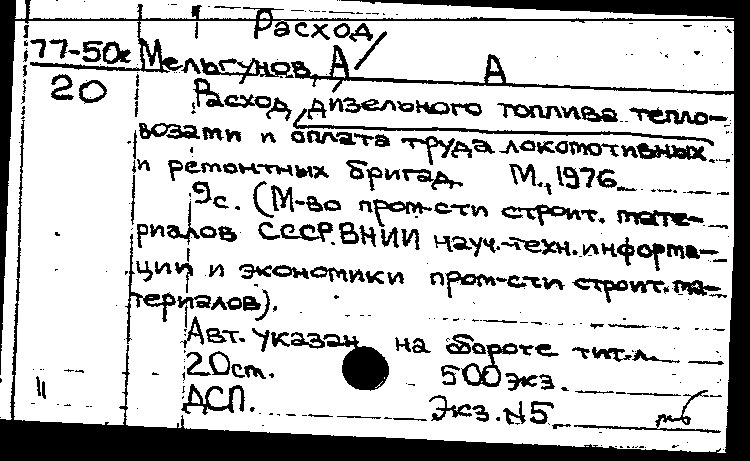 Расход/
77-50к Мельгунов, А/ А
20 Расход дизельного топлива тепло-
возами и оплата труда локомотивных
и ремонтных бригад. М., 1976.
9с. (М-во пром-сти строит. мате-
риалов СССР. ВНИИ науч.-техн. информа-
ции и экономики пром-сти строит. ма-
териалов).
Авт. указан на обороте тит. л.
20 ст. 500 экз.
11 ДСП. Экз. N5